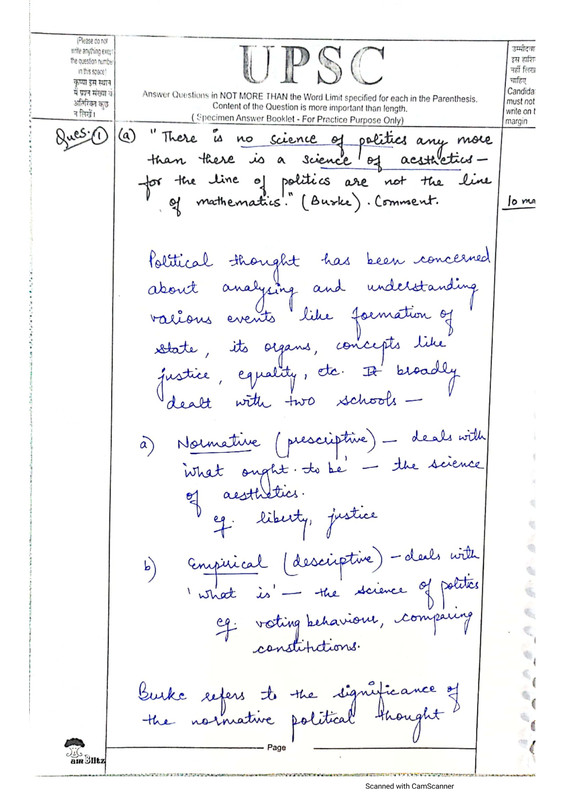 (Please do not
write anything except
the question number
in this space)
कृपया इस स्थान
में प्रश्न संख्या के
अतिरिक्त कुछ
न लिखें।
UPSC
Answer Questions in NOT MORE THAN the Word Limit specified for each in the Parenthesis.
Content of the Question is more important than length.
( Specimen Answer Booklet - For Practice Purpose Only)
उम्मीदवा
इस हाशि
नहीं लिख
चाहिए
Candida
must not
write on t
margin
Ques. 1 (a) "There is no science of politics any more
than there is a science of aesthetics –
for the line of politics are not the line
of mathematics." (Burke). Comment.
10 ma
Political thought has been concerned
about analysing and understanding
various events like formation of
state, its organs, concepts like
justice, equality, etc. It broadly
dealt with two schools –
a) Normative (prescriptive) – deals with
'what ought to be' – the science
of aesthetics.
eg. liberty, justice
b) Empirical (descriptive) – deals with
'what is' – the science of politics
eg. voting behaviour, comparing
constitutions.
Burke refers to the significance of
the normative political thought
Page
Scanned with CamScanner